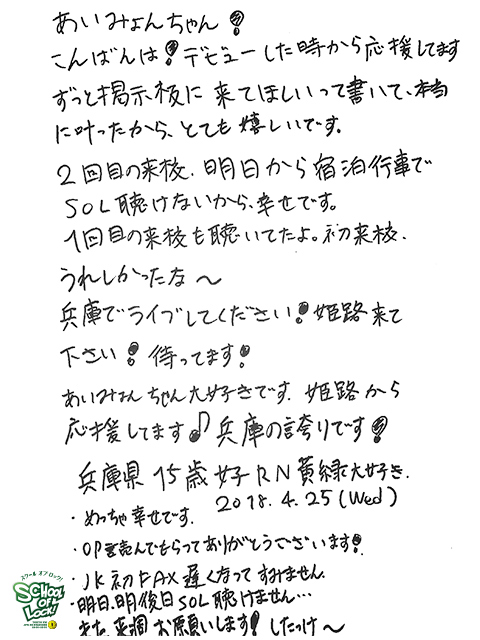 あいみょんちゃん!
こんばんは!デビューした時から応援してます
ずっと掲示板に来てほしいって書いて、本当
に叶ったから、とても嬉しいです。
2回目の来校、明日から宿泊行事で
SOL聴けないから、幸せです。
1回目の来校も聴いてたよ。初来校、
うれしかったな〜
兵庫でライブしてください!姫路来て
下さい!待ってます!
あいみょんちゃん大好きです。姫路から
応援してます♪兵庫の誇りです!
兵庫県 15歳 女子 RN 黄緑大好き.
2018.4.25(Wed)
・めっちゃ幸せです.
・OP言読んでもらってありがとうございます!
・JK初FAX遅くなってすみません.
・明日、明後日SOL聴けません…
また、来週お願いします!したっけ〜
スクール オブ ロック!
SCHOOL OF LOCK!